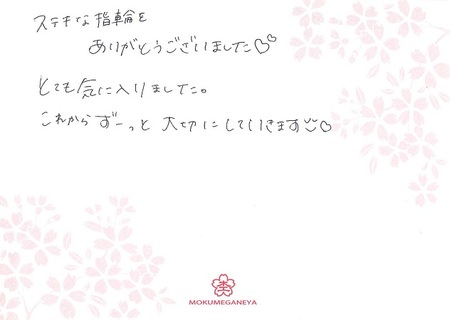 ステキな指輪を
ありがとうございました♡♡
とても気に入りました。
これからずーっと大切にしていきます☺♡
杢
MOKUMEGANEYA